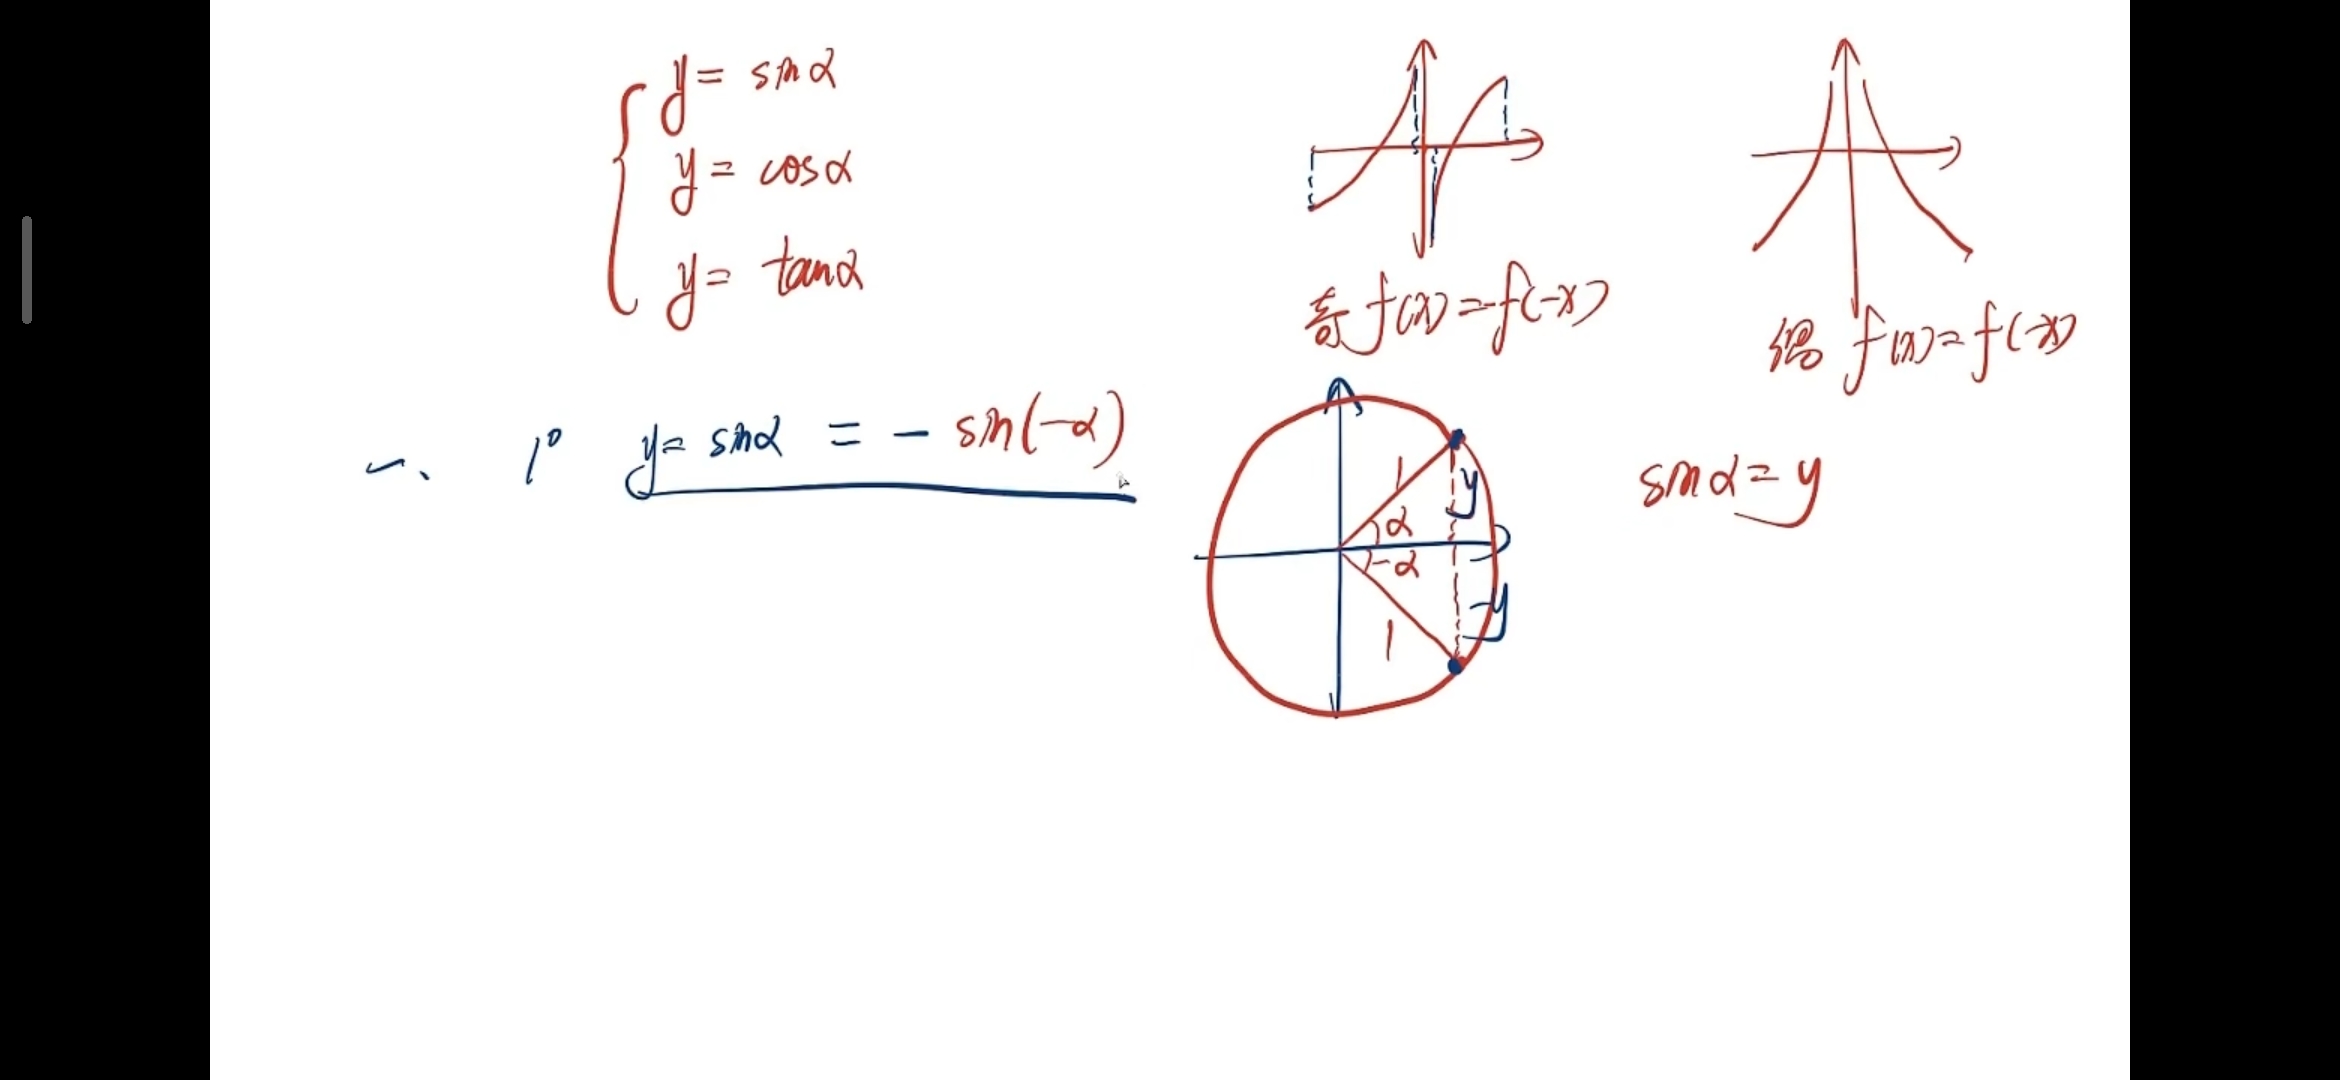 y = sinα
y = cosα
y = tanα
奇 f(x) = -f(-x)
偶 f(x) = f(-x)
一、 1° y = sinα = - sin(-α)
1
y
α
-α
-y
1
sinα = y